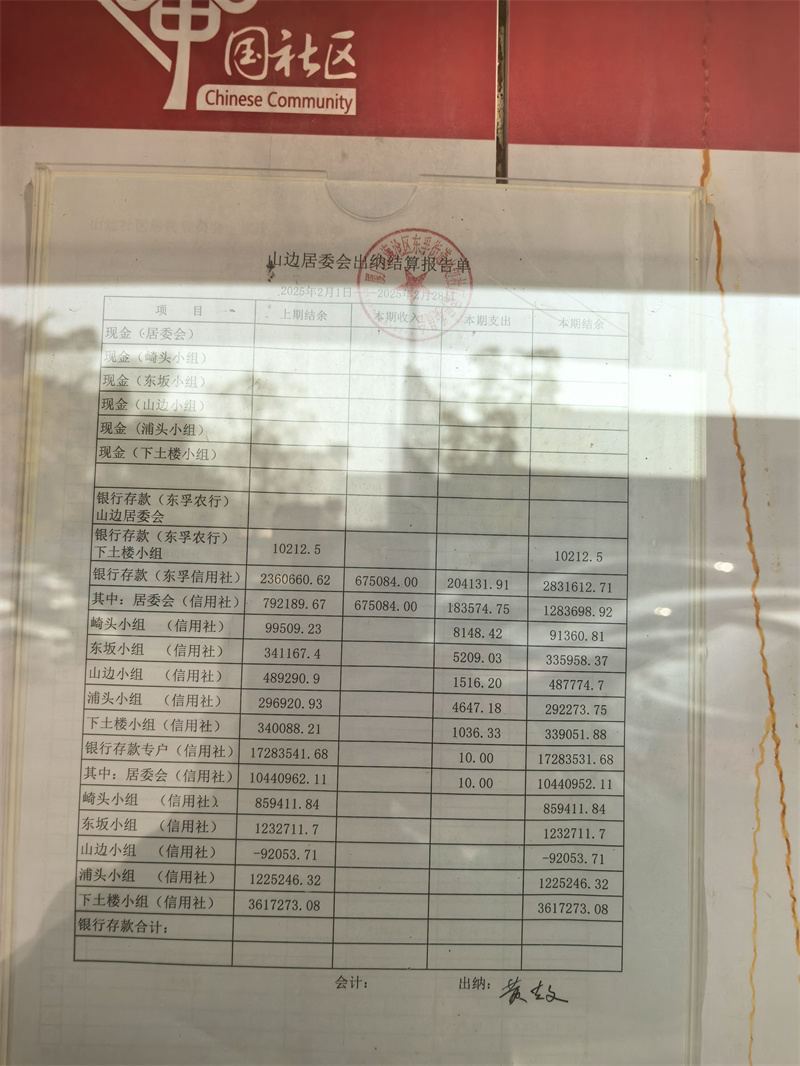 中国社区
Chinese Community
山边居委会出纳结算报告单
2025年2月1日——2025年2月28日
项 目 上期结余 本期收入 本期支出 本期结余
现金（居委会）
现金（崎头小组）
现金（东坂小组）
现金（山边小组）
现金（浦头小组）
现金（下土楼小组）
银行存款（东孚农行）
山边居委会
银行存款（东孚农行）
下土楼小组 10212.5 10212.5
银行存款（东孚信用社） 2360660.62 675084.00 204131.91 2831612.71
其中：居委会（信用社） 792189.67 675084.00 183574.75 1283698.92
崎头小组 （信用社） 99509.23 8148.42 91360.81
东坂小组 （信用社） 341167.4 5209.03 335958.37
山边小组 （信用社） 489290.9 1516.20 487774.7
浦头小组 （信用社） 296920.93 4647.18 292273.75
下土楼小组（信用社） 340088.21 1036.33 339051.88
银行存款专户（信用社） 17283541.68 10.00 17283531.68
其中：居委会（信用社） 10440962.11 10.00 10440952.11
崎头小组 （信用社） 859411.84 859411.84
东坂小组 （信用社） 1232711.7 1232711.7
山边小组 （信用社） -92053.71 -92053.71
浦头小组 （信用社） 1225246.32 1225246.32
下土楼小组（信用社） 3617273.08 3617273.08
银行存款合计：
会计： 出纳：